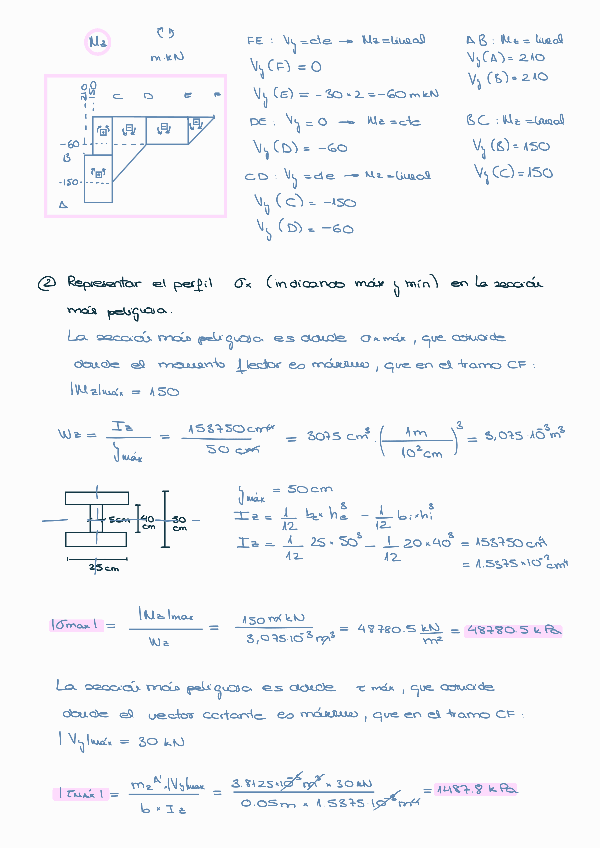 Mz
m·kN
FE: Vy = cte → Mz = lineal
Vy(F) = 0
Vy(E) = -30×2 = -60 mkN
DE: Vy = 0 → Mz = cte
Vy(D) = -60
CD: Vy = cte → Mz = lineal
Vy(C) = -150
Vy(D) = -60
AB: Mz = lineal
Vy(A) = 210
Vy(B) = 210
BC: Mz = lineal
Vy(B) = 150
Vy(C) = 150
210
150
C D E F
-60
B
-150
A
② Representar el perfil σx (indicando máx y mín) en la sección
más peligrosa.
La sección más peligrosa es donde σx máx, que coincide
donde el momento flector es máximo, que en el tramo CF:
|Mz|máx = 150
Wz = Iz / ymáx = 153750 cm⁴ / 50 cm = 3075 cm³·(1m / 10²cm)³ = 3,075·10⁻³ m³
5cm
40 cm
50 cm
25 cm
ymáx = 50 cm
Iz = 1/12 be×he³ - 1/12 bi×hi³
Iz = 1/12 25×50³ - 1/12 20×40³ = 153750 cm⁴
= 1.5375×10⁻³ cm⁴
|σmax| = |Mz|max / Wz = 150 m·kN / 3,075·10⁻³ m³ = 48780.5 kN/m² = 48780.5 kPa
La sección más peligrosa es donde τ máx, que coincide
donde el vector cortante es máximo, que en el tramo CF:
|Vy|máx = 30 kN
|τmáx| = mz^A'·|Vy|max / b × Iz = 3.8125×10⁻³ m³ × 30 kN / 0.05m × 1.5375·10⁻³ m⁴ = 1487.8 kPa